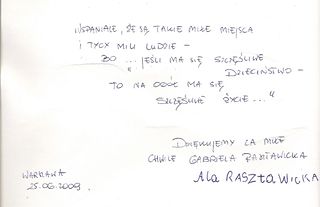 WSPANIALE, ŻE SĄ TAKIE MIŁE MIEJSCA
I TYCY MILI LUDZIE -
BO ... „JEŚLI MA SIĘ SZCZĘŚLIWE
DZIECIŃSTWO -
TO NA OGÓŁ MA SIĘ
SZCZĘŚLIWE ŻYCIE..."
DZIĘKUJEMY ZA MIŁE
CHWILE GABRIELA RASZTAWICKA
Ala RASZTAWICKA
WARSZAWA
25.06.2009.